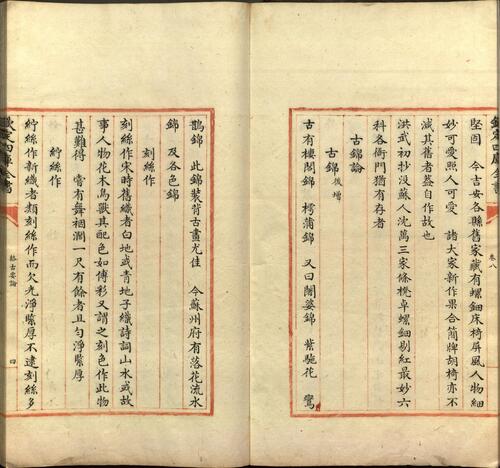 欽定四庫全書
卷八
堅固 今吉安各縣舊家藏有螺鈿床椅屏風人物細
妙可愛照人可愛 諸大家新作果合簡牌胡椅亦不
減其舊者蓋自作故也
洪武初抄没蘇人沈萬三家條櫈卓螺鈿剔紅最妙六
科各衙門猶有存者
古錦論
古錦後增
古有樓閣錦 樗蒲錦 又曰闍婆錦 紫駝花 鸞
鵲錦 此錦裝背古畫尤佳 今蘇州府有落花流水
錦 及各色錦
刻絲作
刻絲作宋時舊織者白地或青地子織詩詞山水或故
事人物花木鳥獸其配色如傅彩又謂之刻色作此物
甚難得 嘗有舞裀濶一尺有餘者且匀淨緊厚
紵絲作
紵絲作新織者類刻絲作而欠光淨緊厚不逮刻絲多
欽定四庫全書
格古要論
四